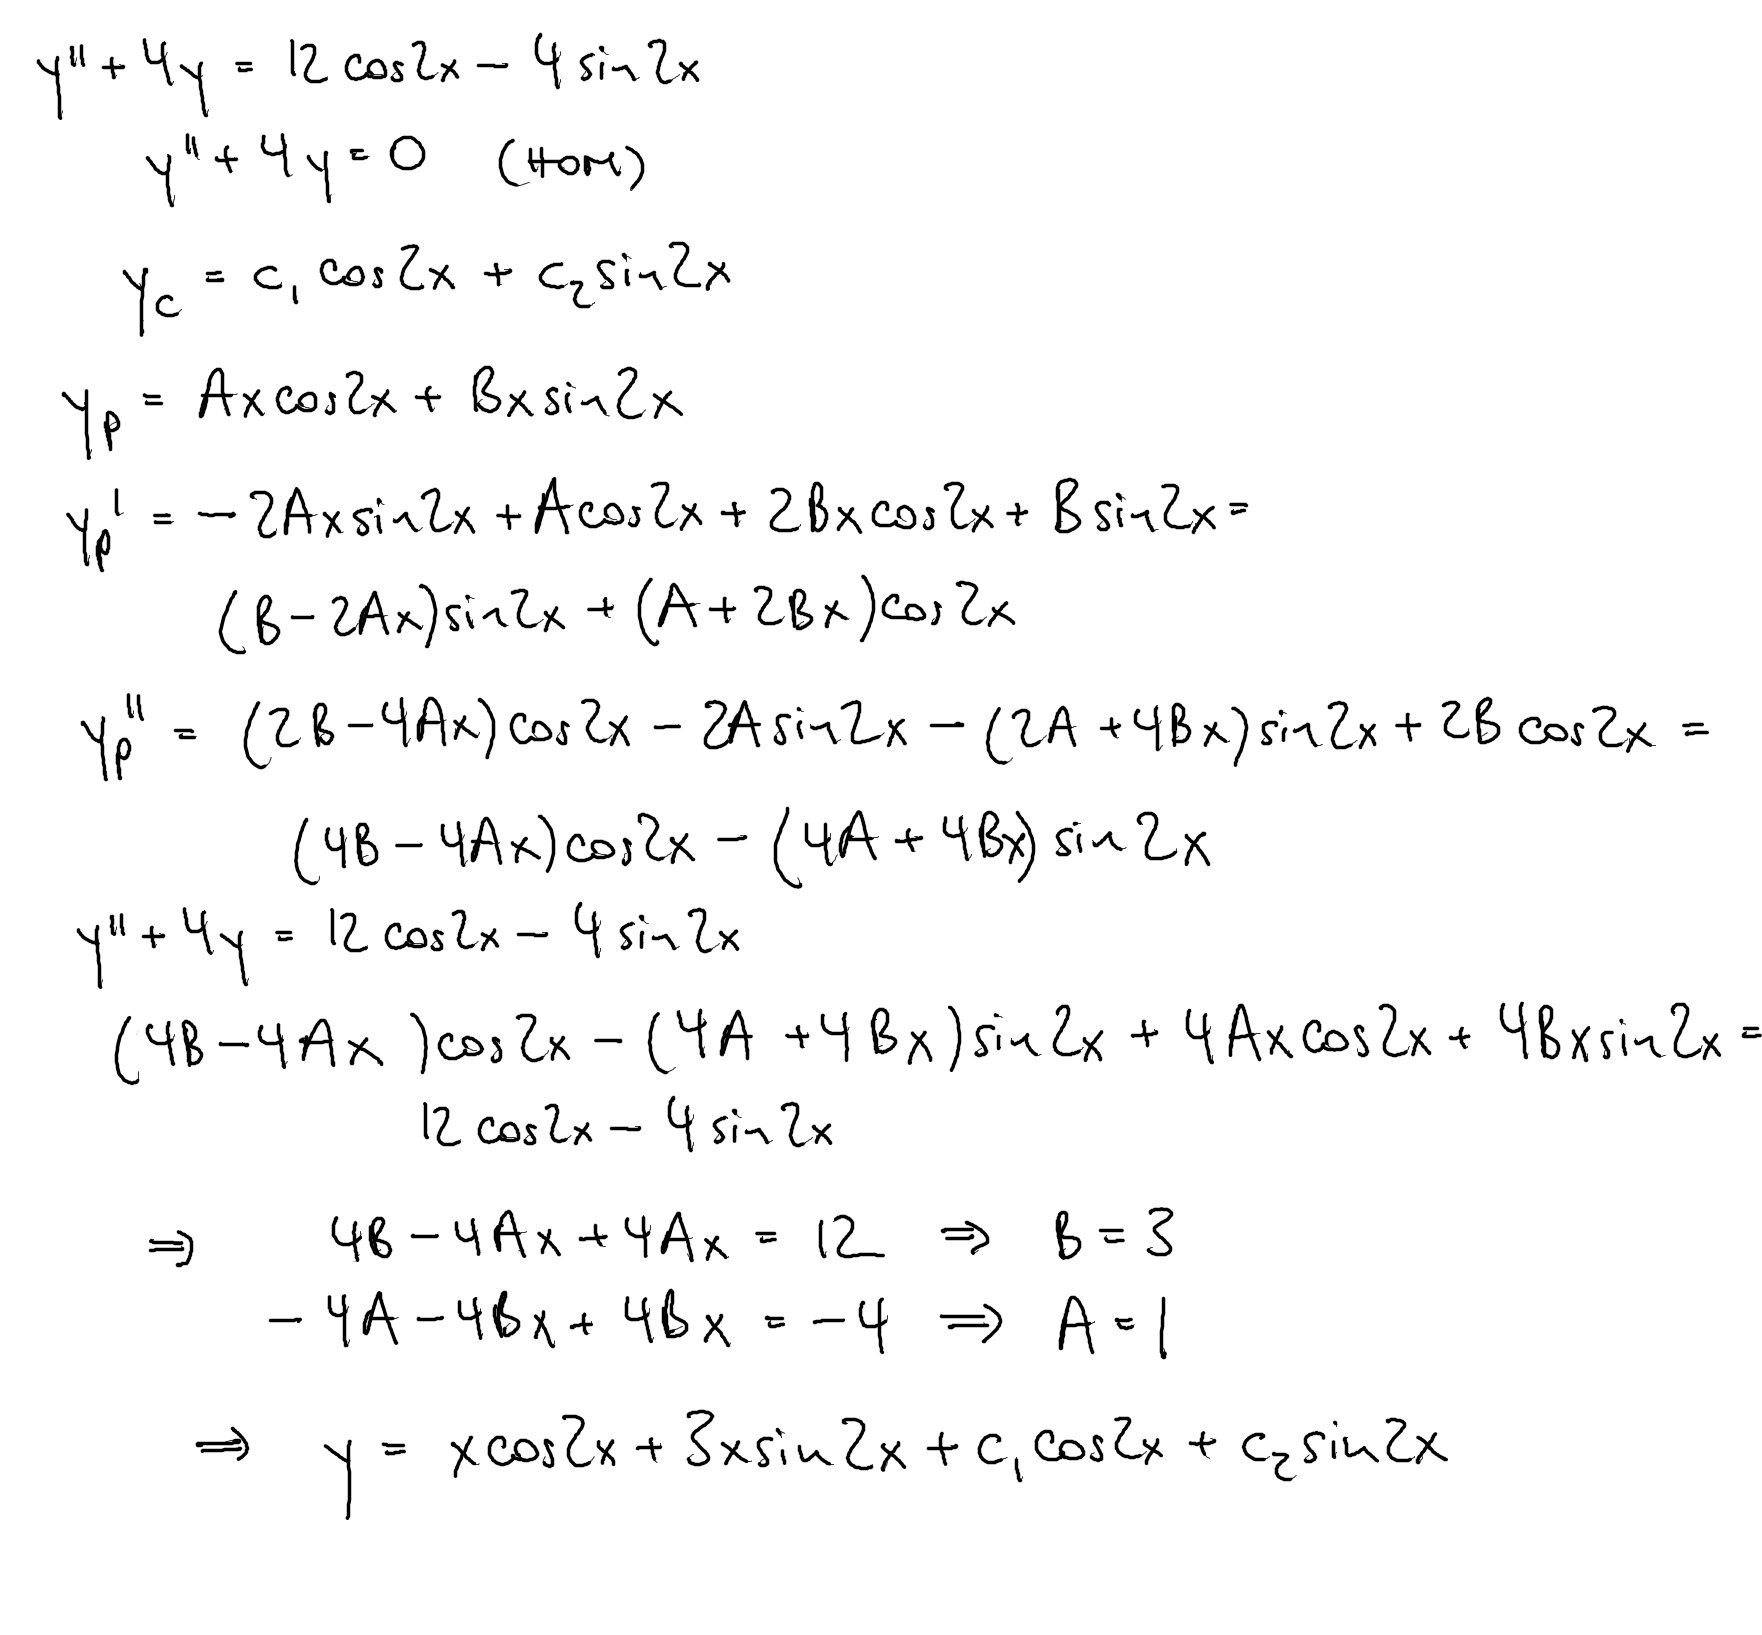 y'' + 4y = 12 cos2x − 4 sin2x
y'' + 4y = 0 (HOM)
y_c = c₁ cos2x + c₂ sin2x
y_p = Ax cos2x + Bx sin2x
y_p' = −2Ax sin2x + A cos2x + 2Bx cos2x + B sin2x =
(B − 2Ax) sin2x + (A + 2Bx) cos2x
y_p'' = (2B − 4Ax) cos2x − 2A sin2x − (2A + 4Bx) sin2x + 2B cos2x =
(4B − 4Ax) cos2x − (4A + 4Bx) sin2x
y'' + 4y = 12 cos2x − 4 sin2x
(4B − 4Ax) cos2x − (4A + 4Bx) sin2x + 4Ax cos2x + 4Bx sin2x =
12 cos2x − 4 sin2x
⇒ 4B − 4Ax + 4Ax = 12 ⇒ B = 3
− 4A − 4Bx + 4Bx = −4 ⇒ A = 1
⇒ y = x cos2x + 3x sin2x + c₁ cos2x + c₂ sin2x